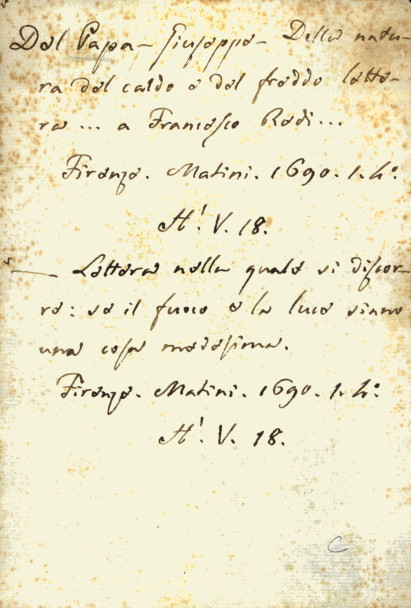 Del Papa – Giuseppe – Della natu-
ra del caldo e del freddo lette-
ra ... a Francesco Redi ...
Firenze. Matini. 1690. 1. 4º.
H¹. V. 18.
— Lettera nella quale si discor-
re: se il fuoco e la luce siano
una cosa medesima.
Firenze. Matini. 1690. 1. 4º.
H¹. V. 18.
C